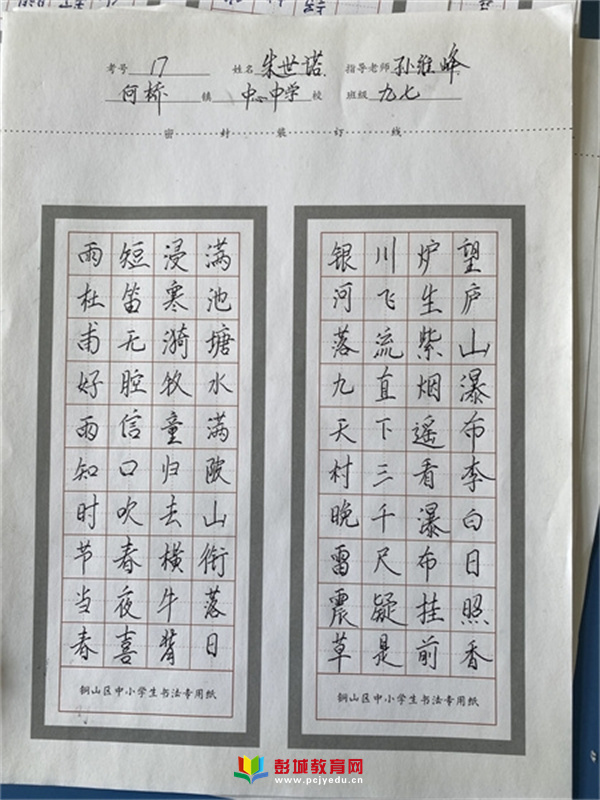 考号 17 姓名 朱世塔 指导老师 孙维峰
何桥 镇 中心中学 校 班级 九七
密 封 装 订 线
望庐山瀑布李白日照香
炉生紫烟遥看瀑布挂前
川飞流直下三千尺疑是
银河落九天村晚雷震草
铜山区中小学生书法专用纸
满池塘水满陂山衔落日
浸寒漪牧童归去横牛背
短笛无腔信口吹春夜喜
雨杜甫好雨知时节当春
铜山区中小学生书法专用纸
彭城教育网
www.pcjyedu.cn